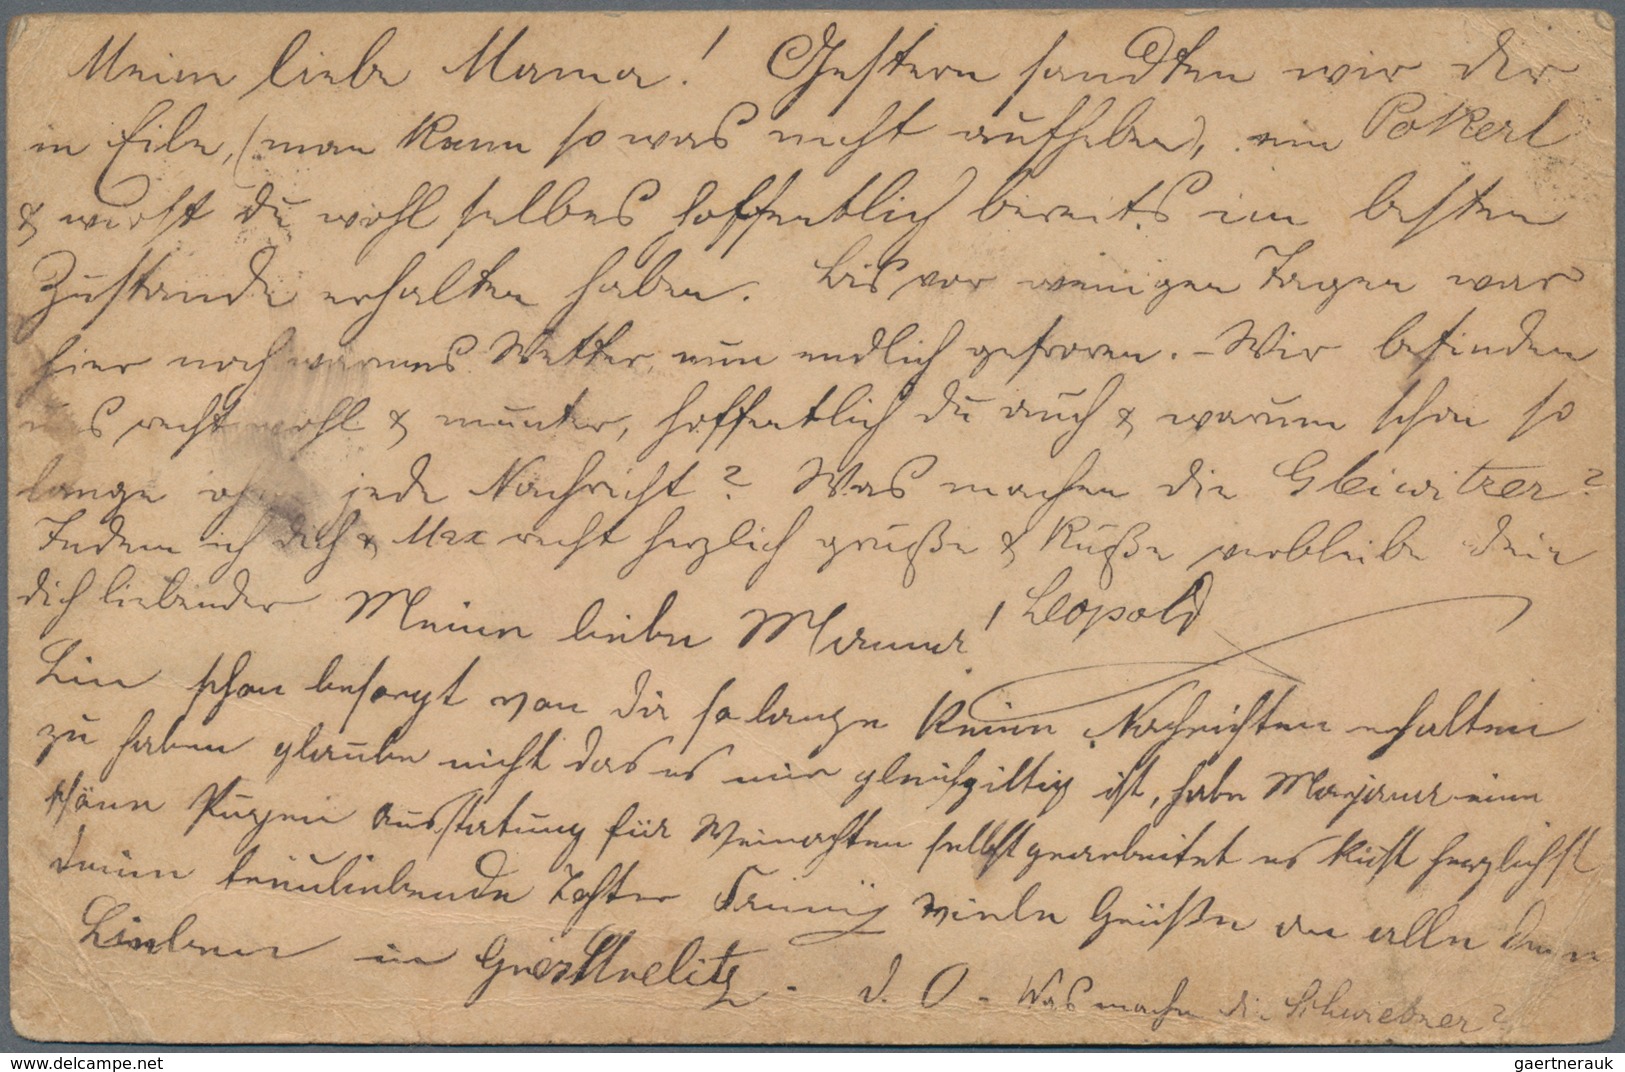 Meine liebe Mama! Gestern sandten wir dir
in Eile, (man kann so was nicht aufheben), ein Pokerl
& wirst du wohl selbes hoffentlich bereits im besten
Zustande erhalten haben. Bis vor wenigen Tagen war
hier noch warmes Wetter, nun endlich gefroren. – Wir befinden
uns recht wohl & munter, hoffentlich du auch & warum schon so
lange ohne jede Nachricht? Was machen die Gleiwitzer?
Indem ich dich & Max recht herzlich grüße & küße verbleibe dein
dich liebender Leopold
Meine liebe Mamma!
Bin schon besorgt von dir so lange keine Nachrichten erhalten
zu haben glaube nicht das es mir gleichgiltig ist, habe eine
schöne ausstatung für Weinachten selbst gearbeitet es küst herzlichst
deine treuliebende Tochter viele Grüße an alle
Lieben in
d. O – Was machen die Schwiebner?
gaertnerauk
www.delcampe.net